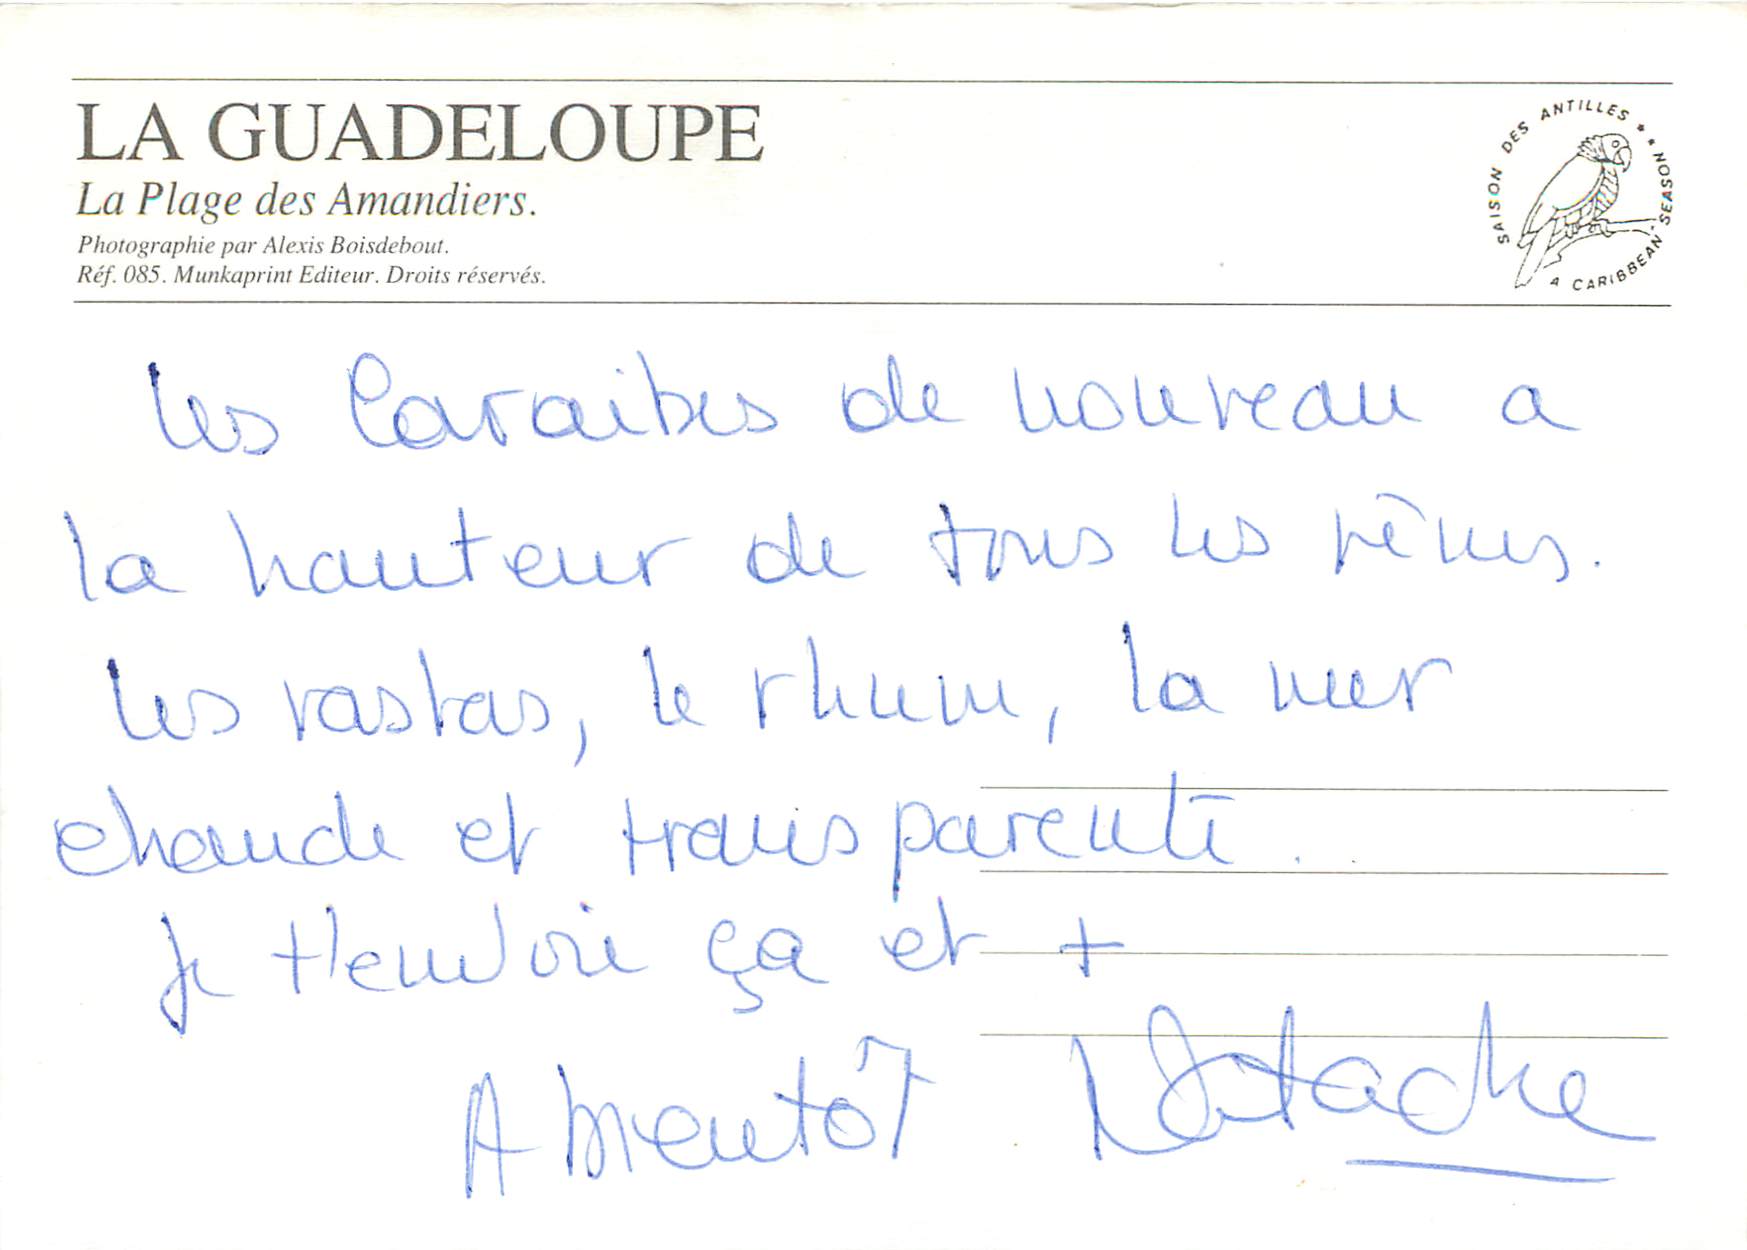 LA GUADELOUPE
La Plage des Amandiers.
Photographie par Alexis Boisdebout.
Réf. 085. Munkaprint Editeur. Droits réservés.
SAISON DES ANTILLES ** A CARIBBEAN SEASON
Les Caraibes de nouveau a
la hauteur de tous les rêves.
Les rastas, le rhum, la mer
chaude et transparente.
Je t'envoie ça et +
A bientôt Natache